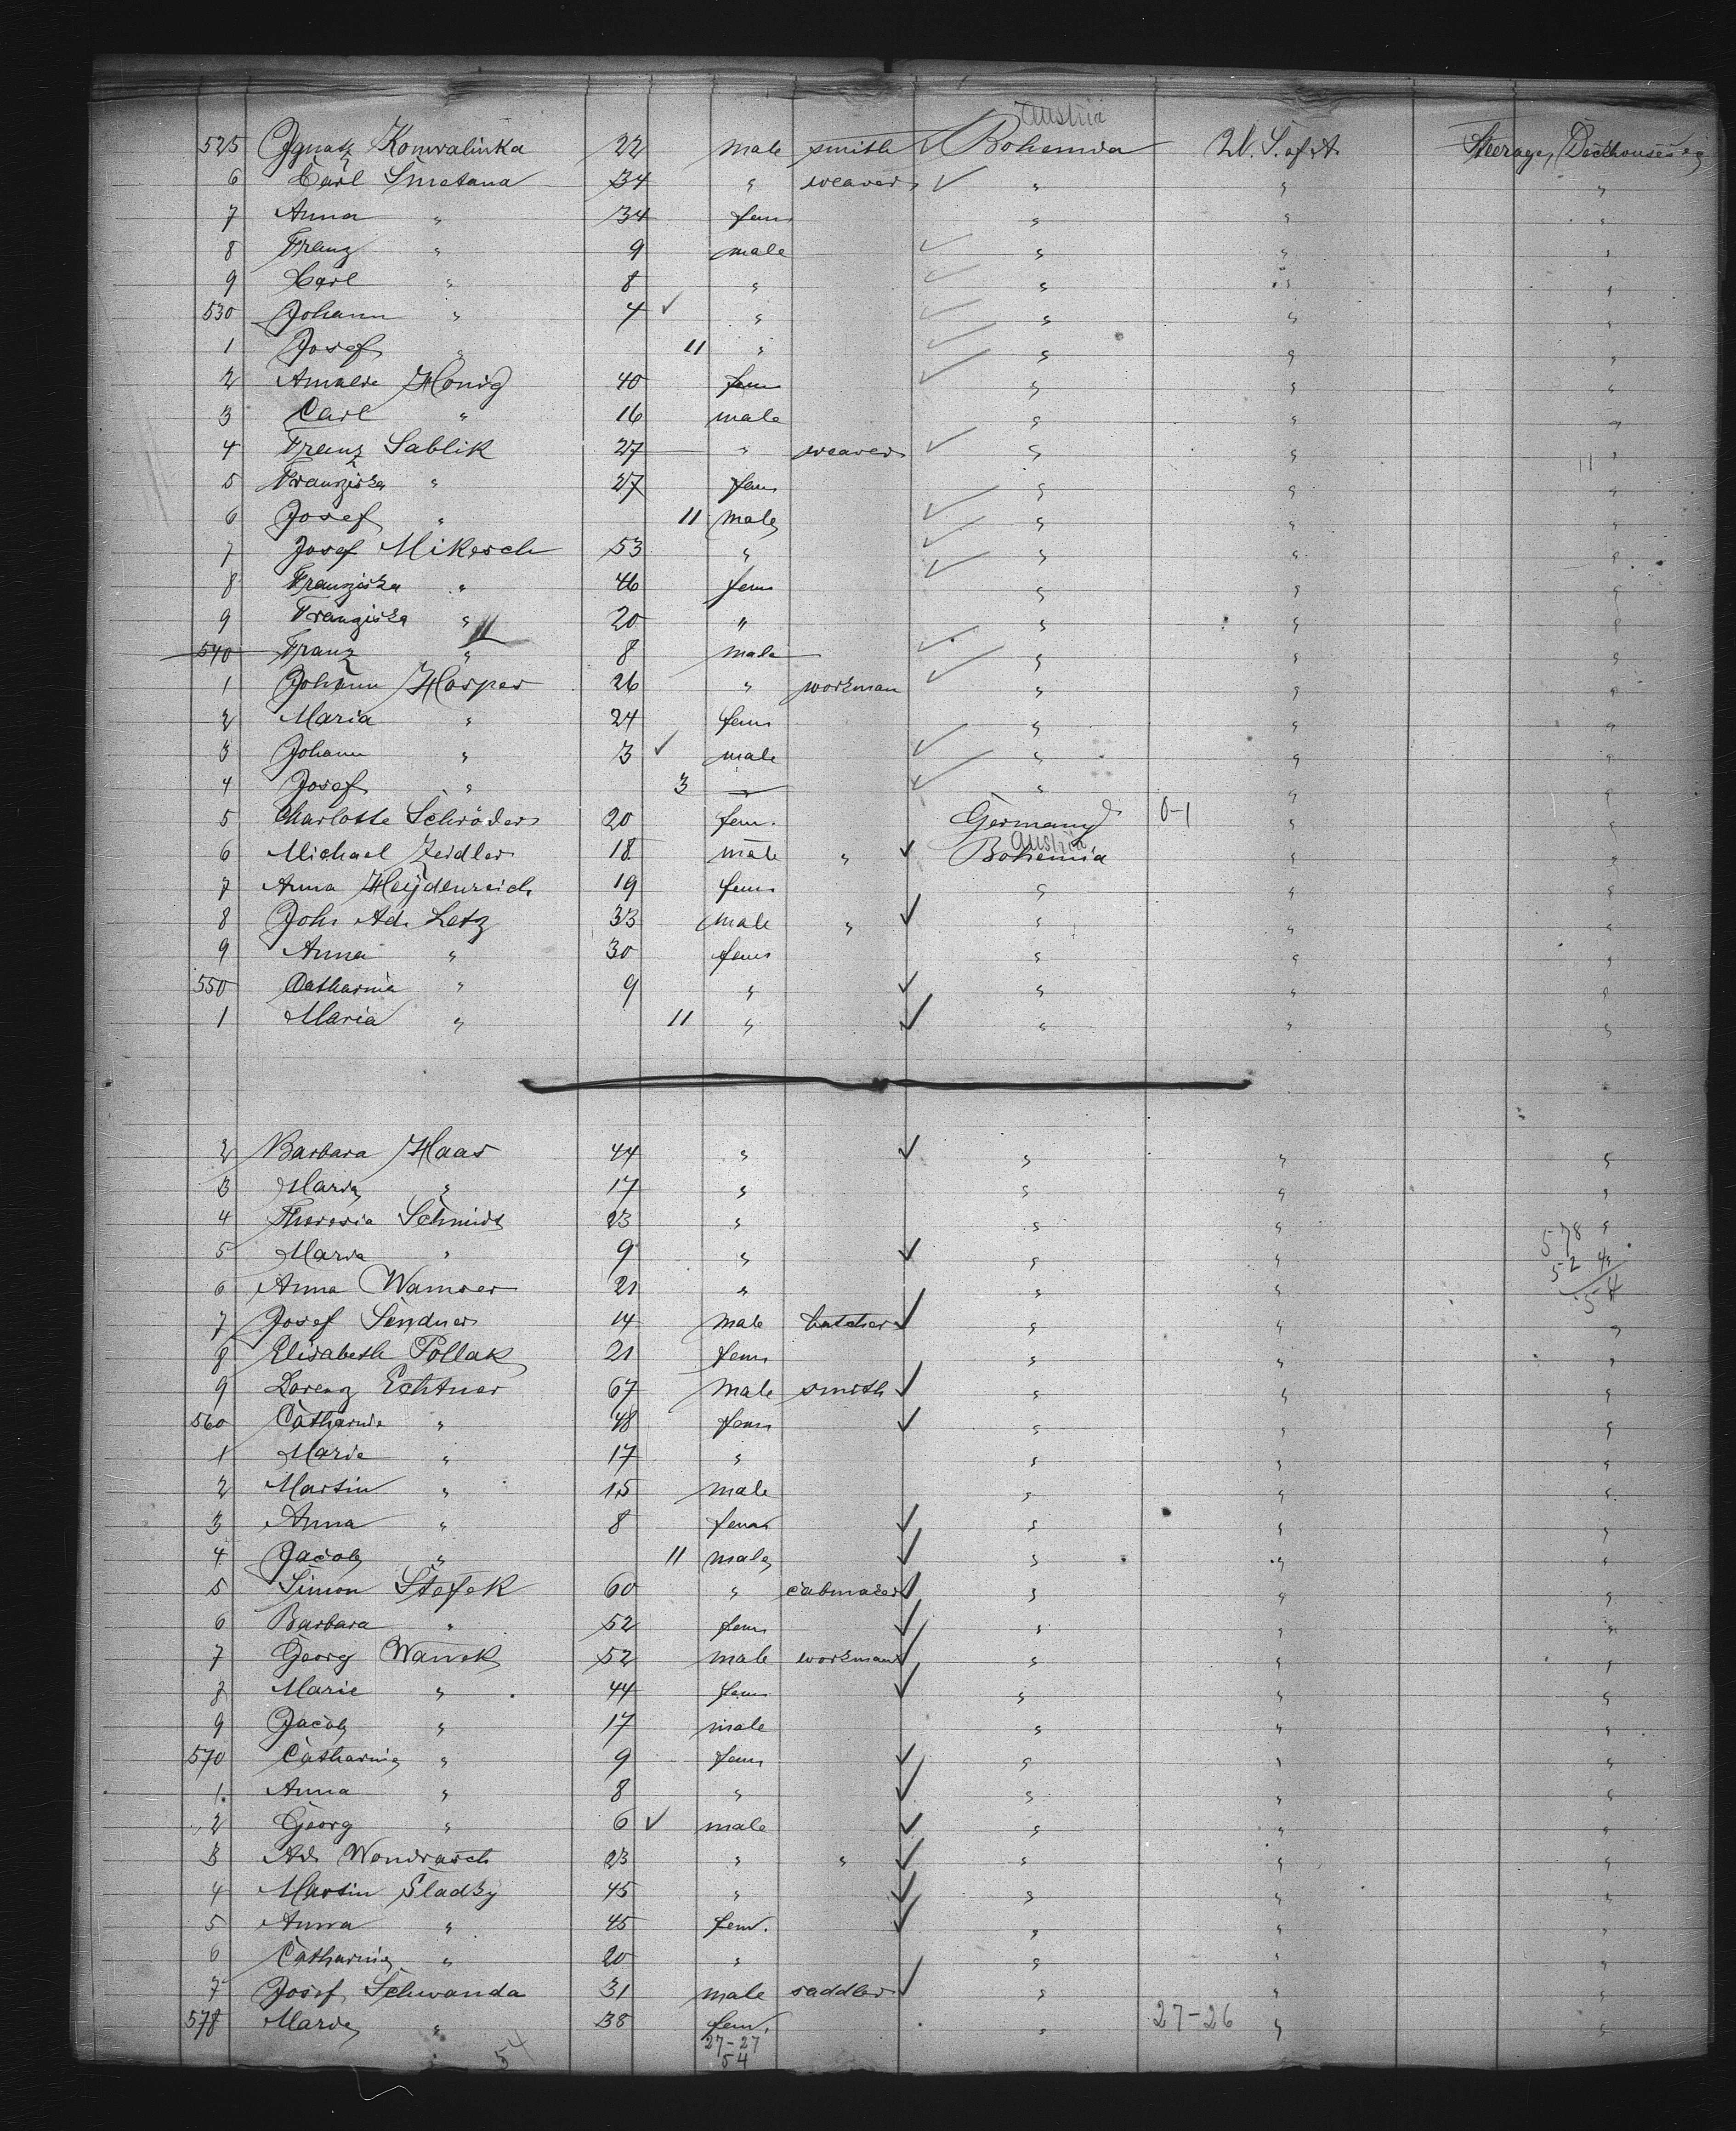 Austria
525 Ignatz Konwalinka 22 male smith Bohemia U. S. of A. Steerage, Deckhouse
6 Carl Smetana 34 " weaver " " "
7 Anna " 34 fem " " "
8 Franz " 9 male " " "
9 Carl " 8 " " " "
530 Johann " 4 " " " "
1 Josef " 11 " " " "
2 Amalie Honig 40 fem " " "
3 Carl " 16 male " " "
4 Franz Sablik 27 " weaver " " "
5 Franziska " 27 fem " " "
6 Josef " 11 male " " "
7 Josef Mikesch 53 " " " "
8 Franziska " 46 fem " " "
9 Franziska " 20 " " " "
540 Franz " 8 male " " "
1 Johann Hosper 26 " workman " " "
2 Maria " 24 fem " " "
3 Johann " 3 male " " "
4 Josef " 3 " " " "
5 Charlotte Schröder 20 fem. Germany 0-1 " "
Austria
6 Michael Zeidler 18 male " Bohemia " "
7 Anna Heydenreich 19 fem " " "
8 Joh. Ad. Letz 33 male " " " "
9 Anna " 30 fem " " "
550 Catharina " 9 " " " "
1 Maria " 11 " " " "
2 Barbara Haas 44 " " " "
3 Maria " 17 " " " "
4 Theresia Schmidt 23 " " " "
5 Maria " 9 " " " "
578
524
54
6 Anna Wamser 21 " " "
7 Josef Lindner 14 male butcher " " "
8 Elisabeth Pollak 21 fem " " "
9 Lorenz Echtner 67 male smith " " "
560 Catharina " 48 fem " " "
1 Marie " 17 " " " "
2 Martin " 15 male " " "
3 Anna " 8 fem " " "
4 Jacob " 11 male " " "
5 Simon Stefek 60 " cabmaker " " "
6 Barbara " 52 fem " " "
7 Georg Wanek 52 male workman " " "
8 Marie " 44 fem " " "
9 Jacob " 17 male " " "
570 Catharina " 9 fem " " "
1 Anna " 8 " " " "
2 Georg " 6 male " " "
3 Ad. Wondrasch 23 " " " " "
4 Martin Sladky 45 " " " "
5 Anna " 45 fem. " " "
6 Catharina " 20 " " " "
7 Josef Schwanda 31 male saddler " " "
578 Marie " 38 fem. " 27-26 " "
54 27-27
54